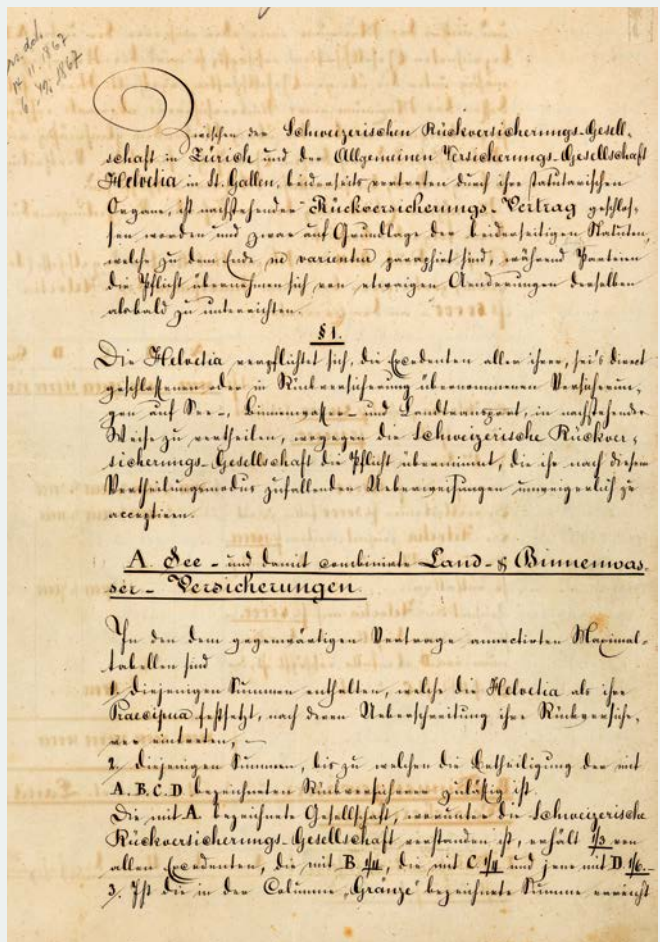 dat.
11. 1867
1867
Zwischen der Schweizerischen Rückversicherungs-Gesell-
schaft in Zürich und der Allgemeinen Versicherungs-Gesellschaft
Helvetia in St. Gallen, beiderseits vertreten durch ihre statutarischen
Organe, ist nachstehender Rückversicherungs-Vertrag geschlos-
sen worden und zwar auf Grundlage der beiderseitigen Statuten,
welche zu dem Ende ne varientur paraphirt sind, während Parteien
die Pflicht übernehmen sich von etwaigen Aenderungen derselben
alsbald zu unterrichten.
§ 1.
Die Helvetia verpflichtet sich, die Excedenten aller ihrer, sei's direct
geschlossenen oder in Rückversicherung übernommenen Versicherun-
gen auf See-, Binnenwasser- und Landtransport, in nachstehender
Weise zu vertheilen, wogegen die Schweizerische Rückver-
sicherungs-Gesellschaft die Pflicht übernimmt, die ihr nach diesem
Vertheilungsmodus zufallenden Ueberweisungen unweigerlich zu
acceptiren.
A. See- und damit combinirte Land- & Binnenwas-
ser-Versicherungen.
In den dem gegenwärtigen Vertrage annectirten Maximal-
tabellen sind
1. diejenigen Summen enthalten, welche die Helvetia als ihre
Praecipua festsetzt, nach deren Ueberschreitung ihre Rückversiche-
rer eintreten, —
2. diejenigen Summen, bis zu welchen die Betheiligung der mit
A. B. C. D bezeichneten Rückversicherer zulässig ist.
Die mit A bezeichnete Gesellschaft, worunter die Schweizerische
Rückversicherungs-Gesellschaft verstanden ist, erhält 1/3 von
allen Excedenten, die mit B 1/4, die mit C 1/4 und jene mit D 1/6.-
3. Ist die in der Columne „Gränze" bezeichnete Summe erreicht